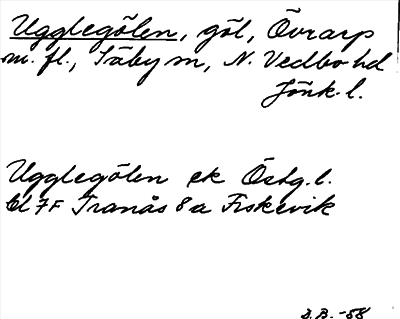 Ugglegölen, göl, Övrarp
m. fl., Säby sn, N. Vedbo hd
Jönk. l.
Ugglegölen ek Östg. l.
bl 7F Tranås 8a Fiskevik
S.B. -58